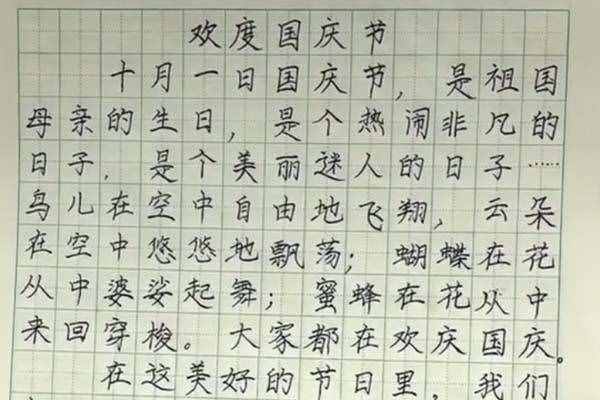 欢度国庆节
十月一日国庆节，是祖国
母亲的生日，是个热闹非凡的
日子，是个美丽迷人的日子……
鸟儿在空中自由地飞翔，云朵
在空中悠悠地飘荡；蝴蝶在花
丛中婆娑起舞；蜜蜂在花丛中
来回穿梭。大家都在欢庆国庆。
在这美好的节日里，我们